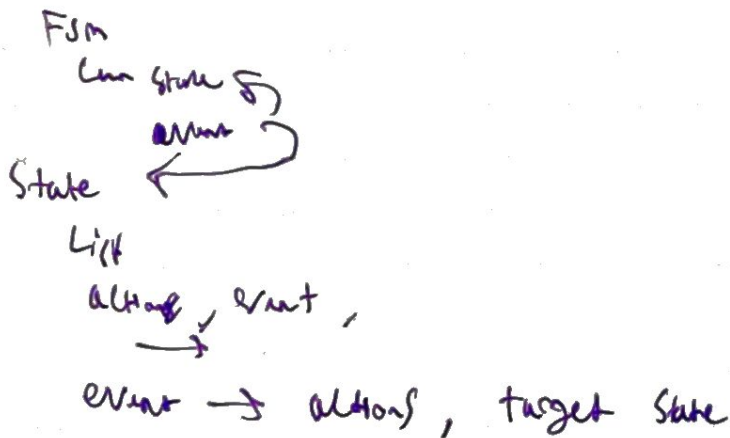 Fsm
Curr State
event
State
List
actions, event,
→
event → actions, target state